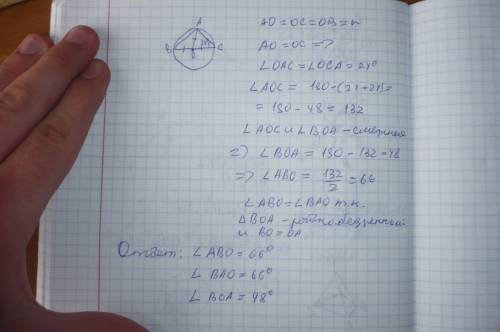 A
B
C
O
AO = OC = OB = r
AO = OC =>
∠OAC = ∠OCA = 24°
∠AOC = 180 - (24+24) =
= 180 - 48 = 132
∠AOC и ∠BOA - смежные
=> ∠BOA = 180 - 132 = 48
=> ∠ABO = 132/2 = 66
∠ABO = ∠BAO т.к.
ΔBOA - равнобедренный
и BO = OA
Ответ: ∠ABO = 66°
∠BAO = 66°
∠BOA = 48°